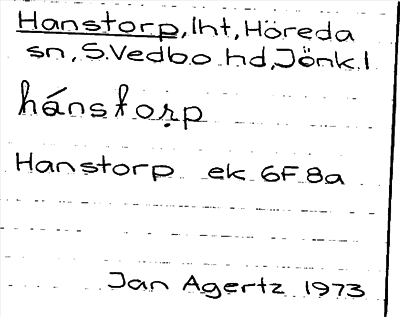 Hanstorp, lht, Höreda
sn, S.Vedbo hd, Jönk.l
hánstoṛp
Hanstorp ek 6F 8a
Jan Agertz 1973